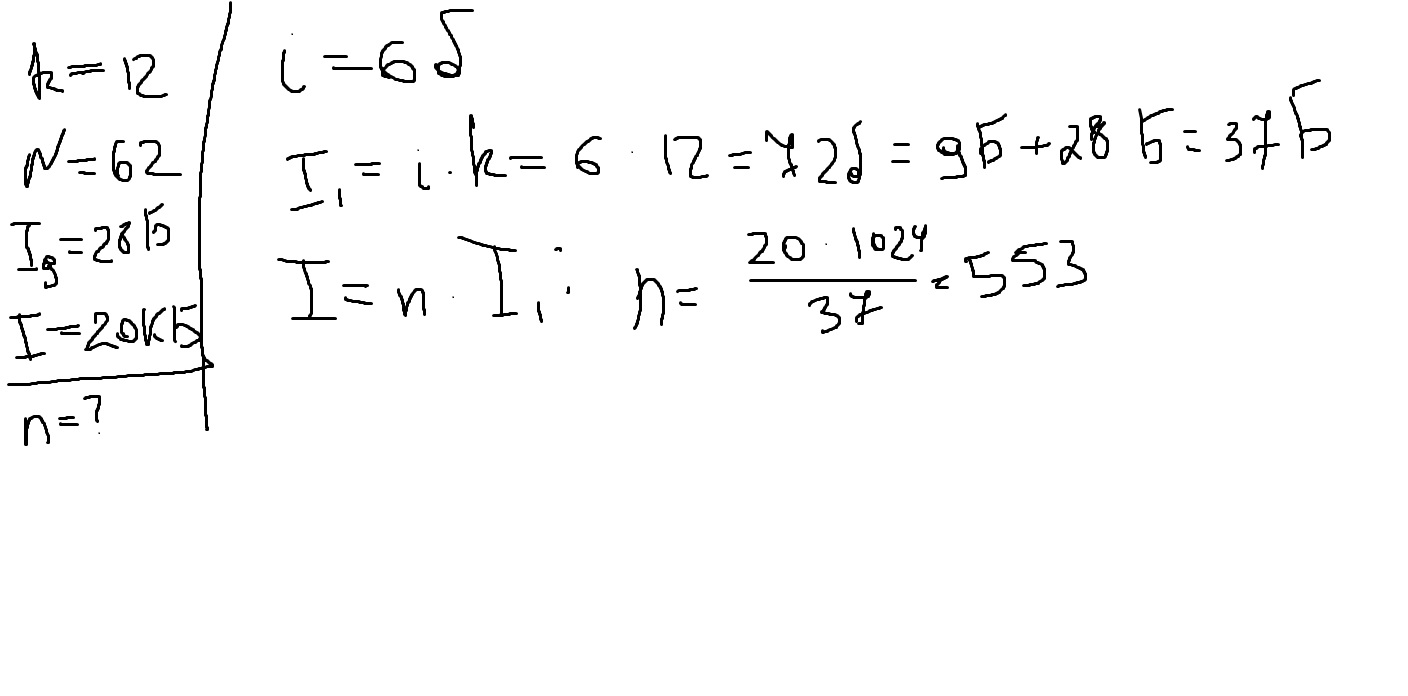 k=12
N=62
Ig=28Б
I=20КБ
n=?
i=6б
I₁=i·k=6·12=72б=9Б+28Б=37Б
I=n·I₁; n=20·1024/37=553